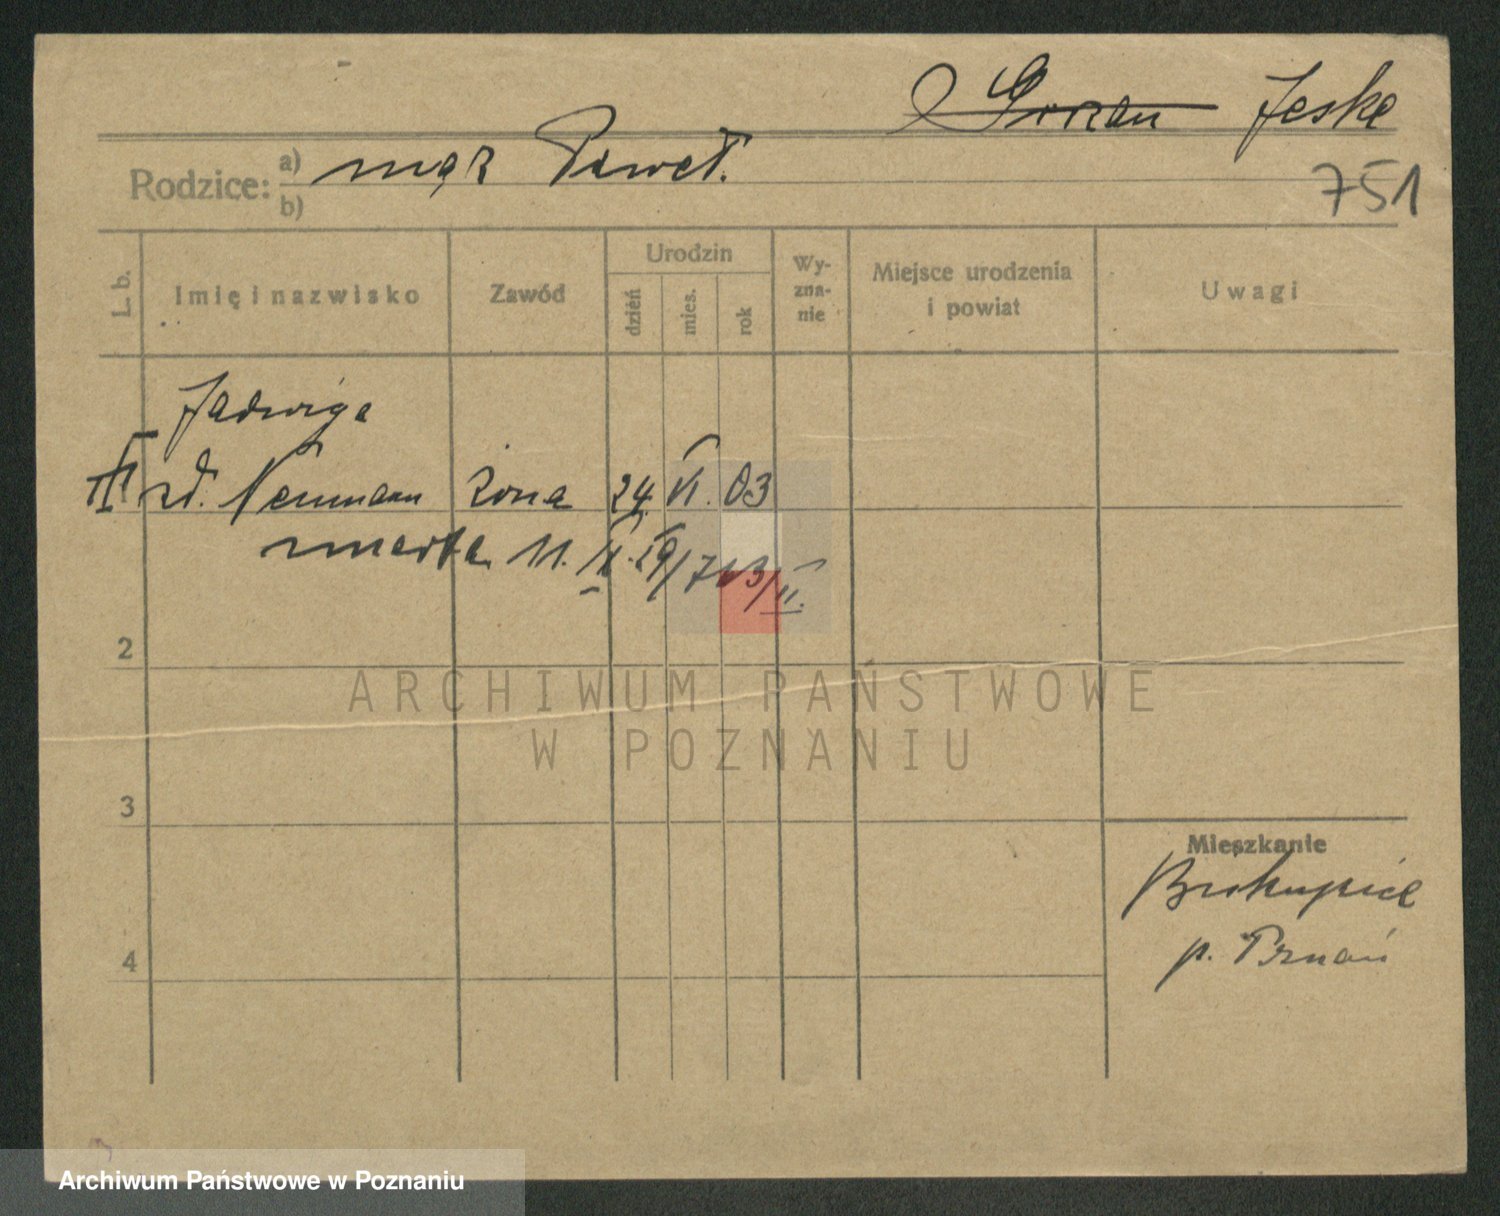 Jeske
751
Rodzice: a) mąż Paweł.
b)
L. b.
Imię i nazwisko
Zawód
Urodzin
dzień
mies.
rok
Wy-
zna-
nie
Miejsce urodzenia
i powiat
Uwagi
Jadwiga
zd. Neumann żona 24. VI. 03
zmarła 11. II. 29/713/II.
2
3
4
Mieszkanie
p. Poznań
ARCHIWUM PAŃSTWOWE
W POZNANIU
Archiwum Państwowe w Poznaniu